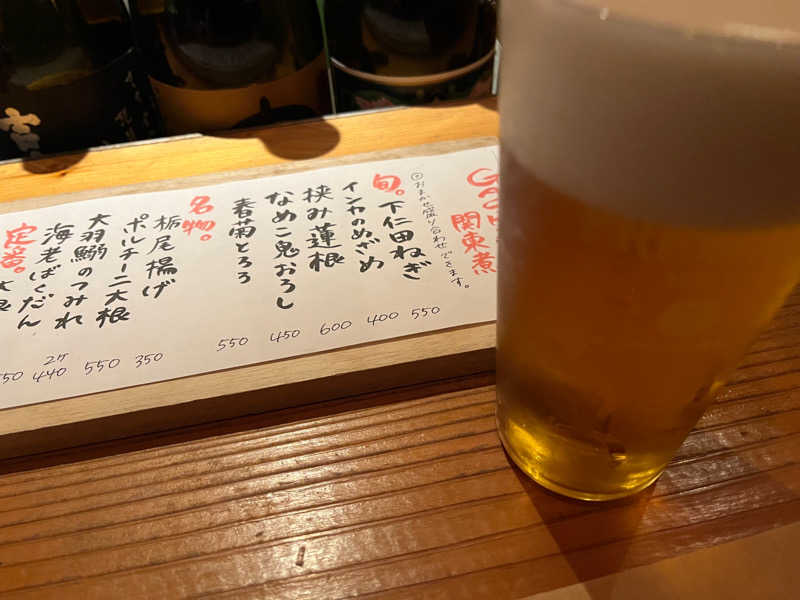 関東煮
◎おまかせ盛り合わせできます。
旬。
下仁田ねぎ 550
インカのめざめ 400
挟み蓮根 600
なめこ鬼おろし 450
春菊とろろ 550
名物。
栃尾揚げ 350
ポルチーニ大根 550
大羽鰯のつみれ 440
海老ばくだん 2ケ
定番。